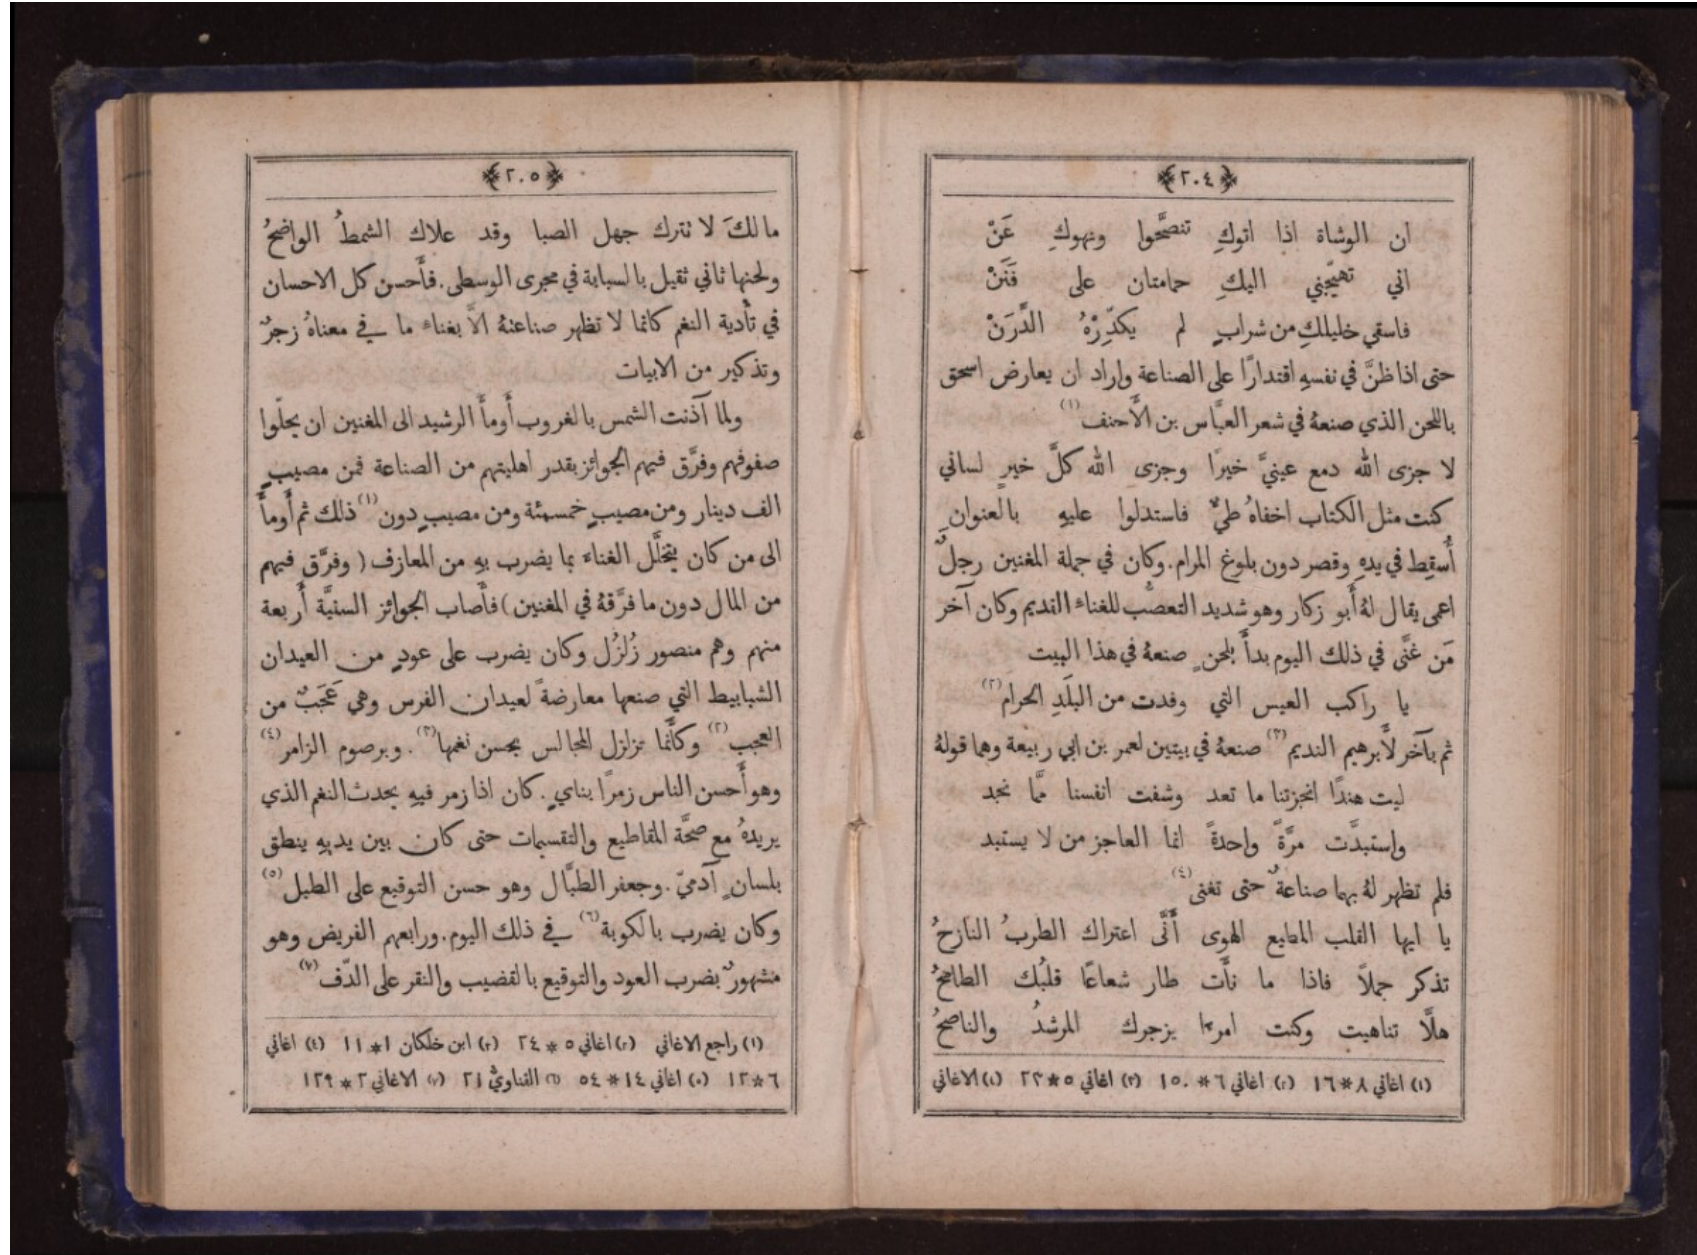 ﴿٢٠٤﴾
ان الوشاة اذا اتوكِ تنصَّحوا ونهوكِ عَنْ
اني تهيّجني اليكِ حمامتان على فَنَنْ
فاسقي خليلكِ من شرابٍ لم يكدّرْهُ الدَّرَنْ
حتى اذا ظنَّ في نفسهِ اقتدارًا على الصناعة واراد ان يعارض اسحق
باللحن الذي صنعهُ في شعر العبَّاس بن الأَحنف (١)
لا جزى الله دمع عينيَّ خيرًا وجزى الله كلَّ خيرٍ لساني
كنت مثل الكتاب اخفاهُ طيٌّ فاستدلوا عليهِ بالعنوانِ
أُسقِط في يدهِ وقصر دون بلوغ المرام. وكان في جملة المغنين رجلٌ
اعمى يقال لهُ أَبو زكار وهو شديد التعصُّب للغناء القديم وكان آخر
مَن غنَّى في ذلك اليوم بدأَ بلحنٍ صنعهُ في هذا البيت
يا راكب العيس التي وفدت من البلَدِ الحرام (٢)
ثم بآخر لأبرهيم النديم (٣) صنعهُ في بيتين لعمر بن ابي ربيعة وهما قولهُ
ليت هندًا انجزتنا ما تعد وشفت انفسنا ممَّا نجد
واستبدَّت مرَّةً واحدةً انما العاجز من لا يستبد
فلم تظهر لهُ بهما صناعةٌ حتى تغنى (٤)
يا ايها القلب المطيع الهوى أَنَّى اعتراك الطربُ النازحُ
تذكر جملاً فاذا ما نأَت طار شعاعًا قلبُك الطامحُ
هلَّا تناهيت وكنت امرءا يزجرك المرشدُ والناصحُ
(١) اغاني ٨*١٦ (٢) اغاني ٦*١٥٠ (٣) اغاني ٥*٢٣ (٤) الاغاني
﴿٢٠٥﴾
ما لكَ لا تترك جهل الصبا وقد علاك الشمطُ الواضحُ
ولحنها ثاني ثقيل بالسبابة في مجرى الوسطى. فأَحسن كل الاحسان
في تأدية النغم كانما لا تظهر صناعتهُ الَّا بغناء ما في معناهُ زجرٌ
وتذكير من الابيات
ولما آذنت الشمس بالغروب أَومأَ الرشيد الى المغنين ان يحلّوا
صفوفهم وفرَّق فيهم الجوائز بقدر اهليتهم من الصناعة فمن مصيبٍ
الف دينار ومن مصيبٍ خمسمئة ومن مصيبٍ دون (١) ذلك ثم أَومأَ
الى من كان يتخلَّل الغناء بما يضرب بهِ من المعازف ( وفرَّق فيهم
من المال دون ما فرَّقهُ في المغنين ) فأَصاب الجوائز السنيَّة أَربعة
منهم وهم منصور زُلزُل وكان يضرب على عودٍ من العيدان
الشبابيط التي صنعها معارضةً لعيدان الفرس وهي عَجَبٌ من
العجب (٢) وكأَنما تزلزل المجالس بحسن نغمها (٣). وبرصوم الزامر (٤)
وهو أَحسن الناس زمرًا بنايٍ. كان اذا زمر فيهِ يحدث النغم الذي
يريدهُ مع صحَّة المقاطيع والتقسيمات حتى كان بين يديهِ ينطق
بلسانٍ آدميّ. وجعفر الطبَّال وهو حسن التوقيع على الطبل (٥)
وكان يضرب بالكوبة (٦) في ذلك اليوم. ورابعهم الغريض وهو
مشهورٌ بضرب العود والتوقيع بالقضيب والنقر على الدّف (٧)
(١) راجع الاغاني (٢) اغاني ٥*٢٤ (٣) ابن خلكان ١*١١ (٤) اغاني
٦*١٢ (٥) اغاني ١٤*٥٤ (٦) القناويّ ٢١ (٧) الاغاني ٢*١٢٩